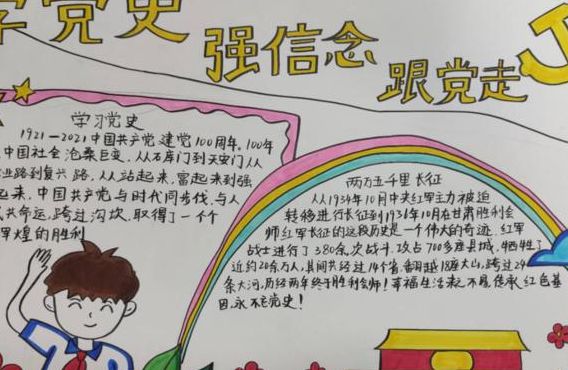 学党史
强信念
跟党走
学习党史
1921-2021中国共产党建党100周年,100年
中国社会沧桑巨变,从石库门到天安门从
业路到复兴路,从站起来,富起来到强
起来,中国共产党与时代同步伐,与人
共命运,跨过沟坎,取得了一个个
辉煌的胜利
两万五千里长征
从1934年10月中央红军主力被迫
转移进行长征到1936年10月在甘肃胜利会
师红军长征的这段历史是一个伟大的奇迹,红军
战士进行了380余次战斗,攻占700多座县城,牺牲了
近约20余万人,其间共经过14个省,翻越18座大山,跨过24
条大河,历经两年终于胜利会师!幸福生活来之不易,传承红色基
因,永不忘党史!